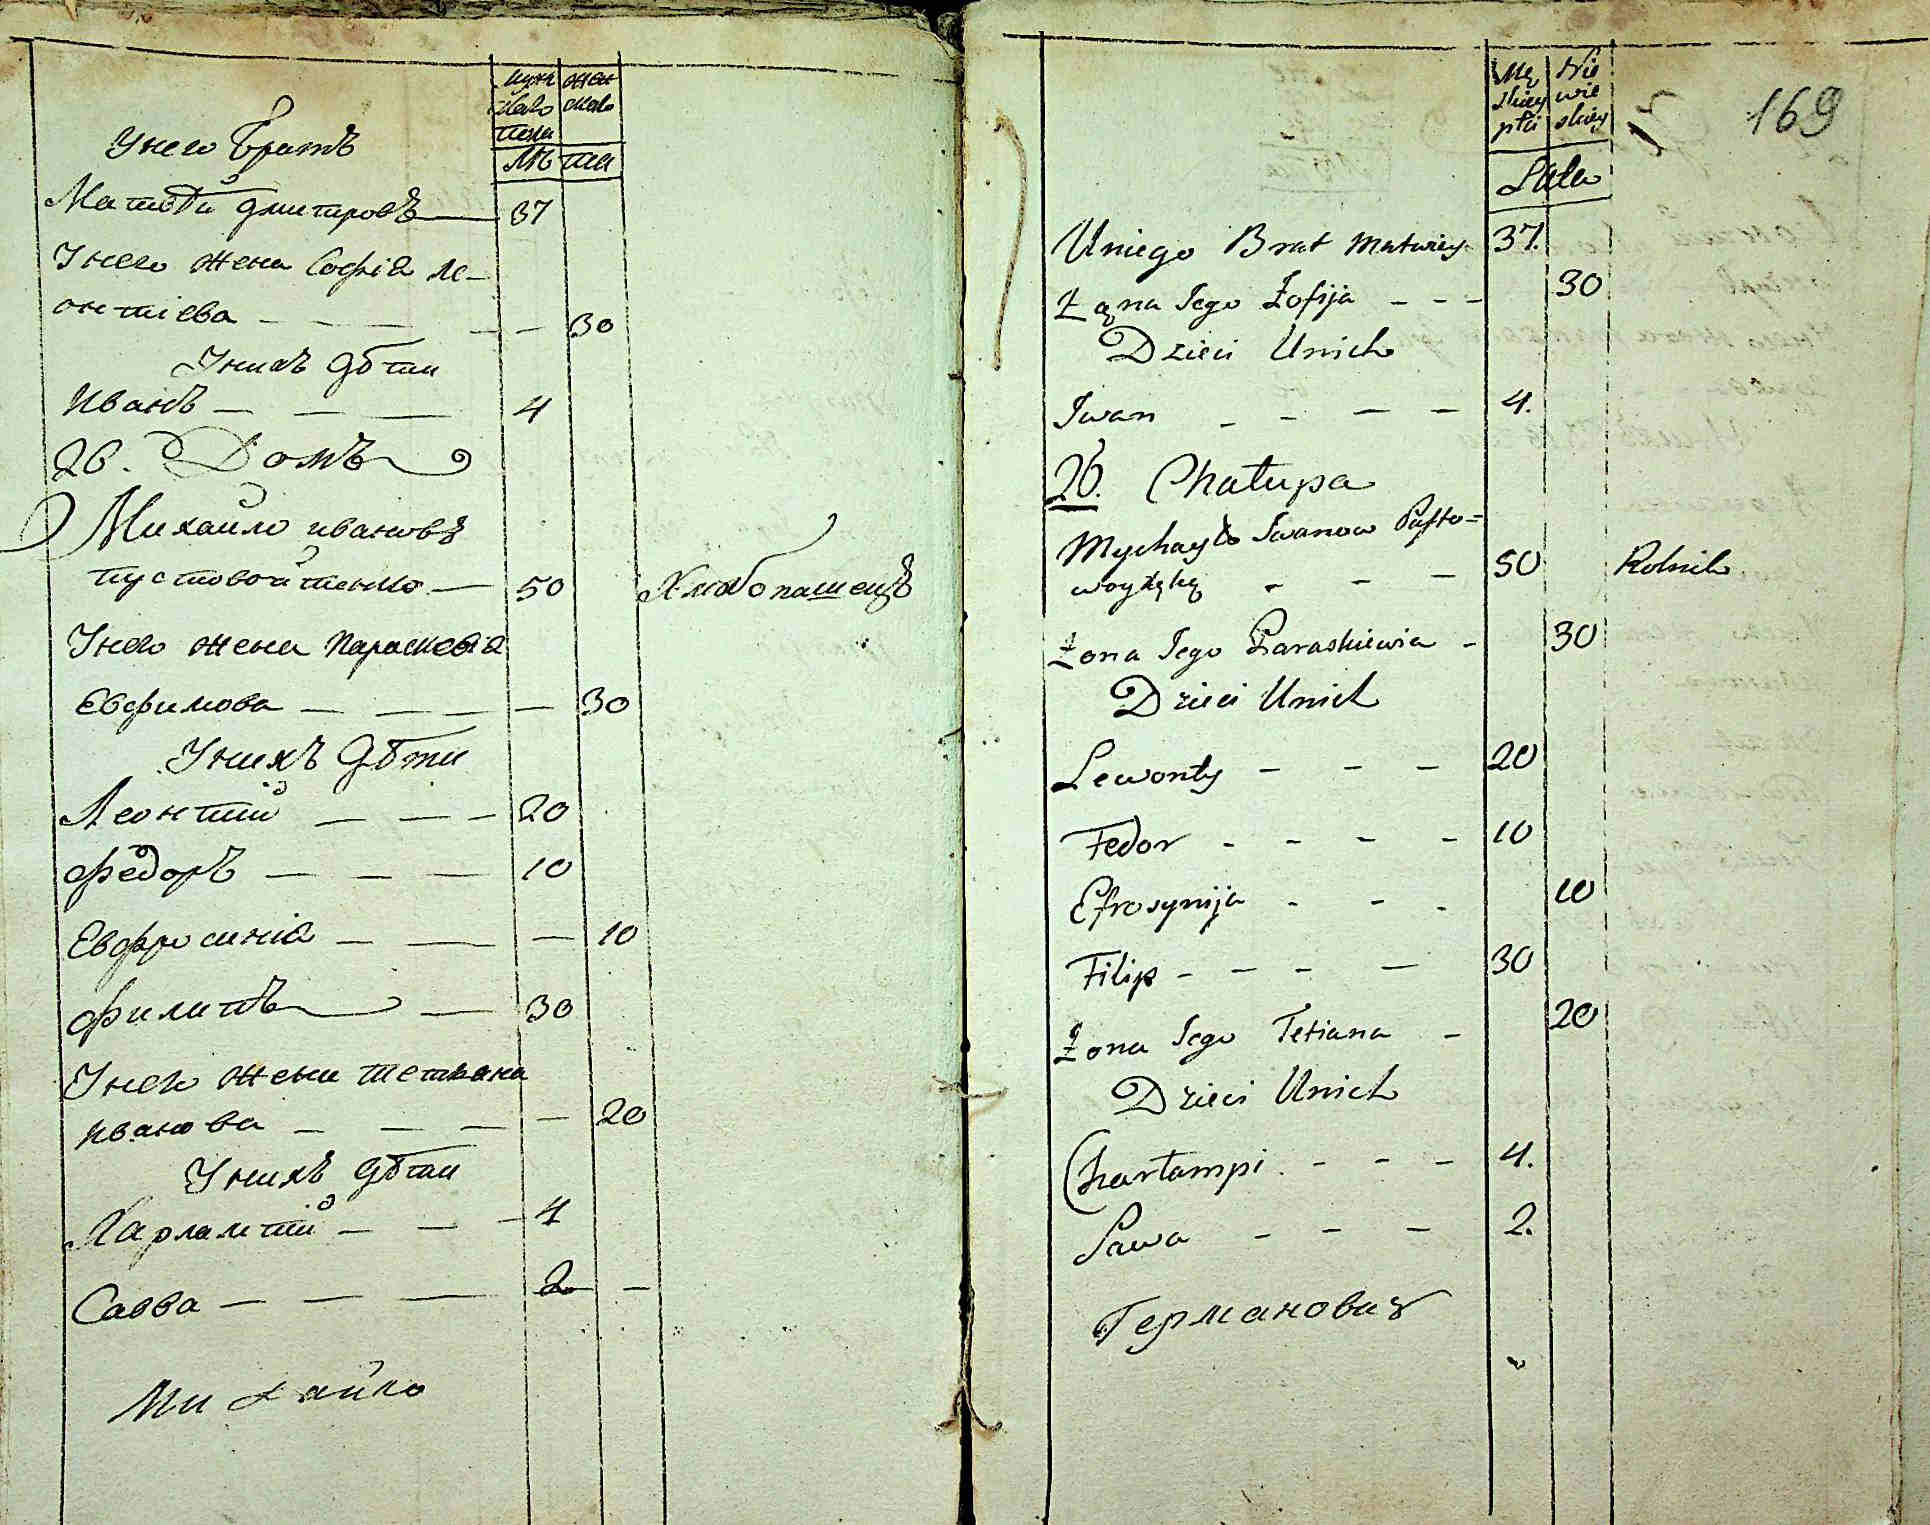 Муж
ска
пола
жен
ска
Лѣта
У него братъ
Матвѣй Дмитровъ 37
У него жена Софія Ле-
онтіева 30
У нихъ дѣти
Иванъ 4
26. Домъ
Михайло Ивановъ
Пустовойтенко 50 Хлѣбопашецъ
У него жена Параскевія
Евфимова 30
У нихъ дѣти
Леонтій 20
Федоръ 10
Евфросинія 10
Филипъ 30
У него жена Тетьяна
Иванова 20
У нихъ дѣти
Харлампій 4
Савва 2
Михайло
169
Mę
skiey
płci
Nie
wie
skiey
Lata
U niego Brat Matwiey 37.
Żona Jego Zofija 30
Dzieci U nich
Iwan 4.
26. Chałupa
Mychayło Iwanow Pusto=
woytęką 50 Rolnik
Żona Jego Paraskiewia 30
Dzieci U nich
Lewonty 20
Fedor 10
Efrosynija 10
Filip 30
Żona Jego Tetiana 20
Dzieci U nich
Charłampi 4.
Sawa 2.
Германовичъ